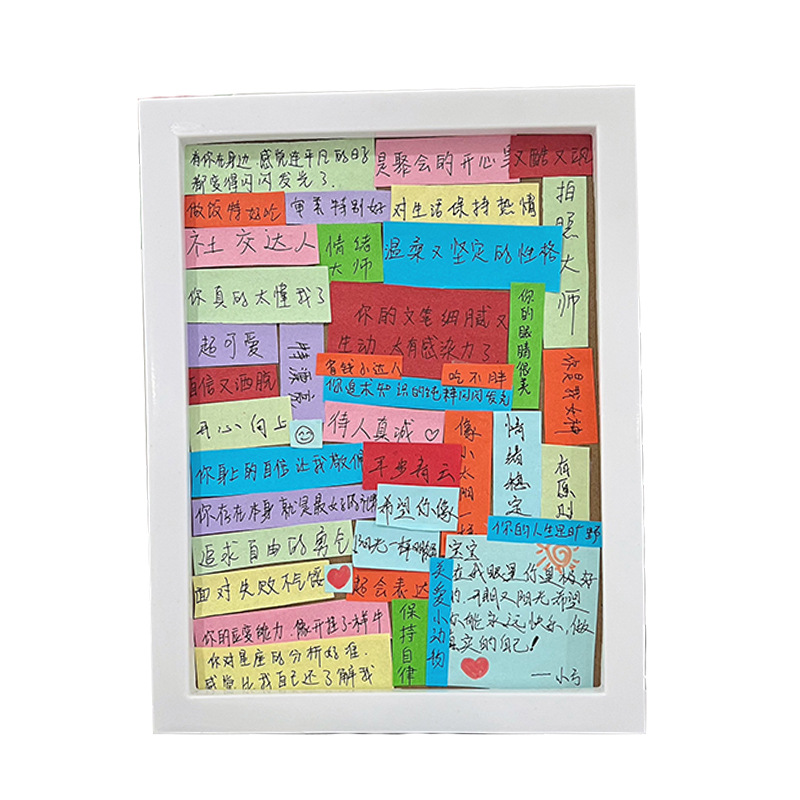 有你在身边,感觉连平凡的日子
都变得闪闪发光了.
是聚会的开心果
又酷又飒
做饭特好吃
审美特别好
对生活保持热情
拍照大师
社交达人
情绪大师
温柔又坚定的性格
你真的太懂我了
你的文笔细腻又
生动,太有感染力了
你的眼睛很美
超可爱
特漂亮
省钱小达人
吃不胖
你是我女神
自信又洒脱
你追求知识的
闪闪发光
开心向上
待人真诚
像小太阳一样
情绪稳定
有原则
你身上的自信让我敬佩
平步青云
你存在本身就是最好的
希望你像
阳光一样明媚
你的人生是旷野
追求自由的勇气
宝宝
在我眼里你是最好
的,开朗又阳光希望
你能永远快乐,做
真实的自己!
——小亏
面对失败不气馁
超会表达
关爱小动物
保持自律
你的应变能力,像开挂了一样牛
你对星座的分析好准,
感觉比我自己还了解我